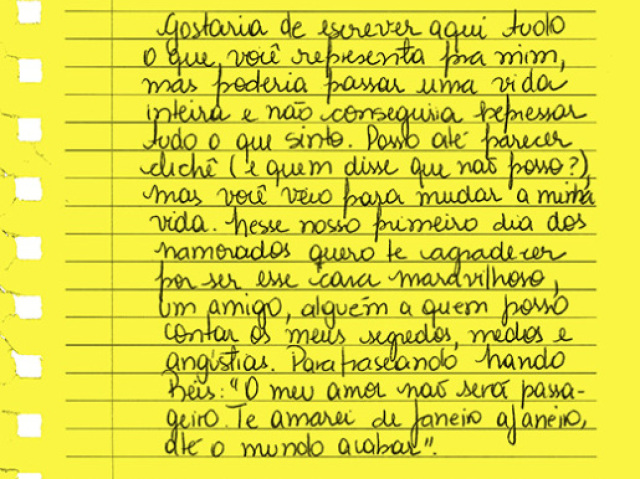 Gostaria de escrever aqui tudo
o que você representa pra mim,
mas poderia passar uma vida
inteira e não conseguiria expressar
tudo o que sinto. Posso até parecer
clichê (e quem disse que não posso?),
mas você veio para mudar a minha
vida. Nesse nosso primeiro dia dos
namorados quero te agradecer
por ser esse cara maravilhoso,
um amigo, alguém a quem posso
contar os meus segredos, medos e
angústias. Parafraseando Nando
Reis: "O meu amor não será passa-
geiro. Te amarei de janeiro a janeiro,
até o mundo acabar".